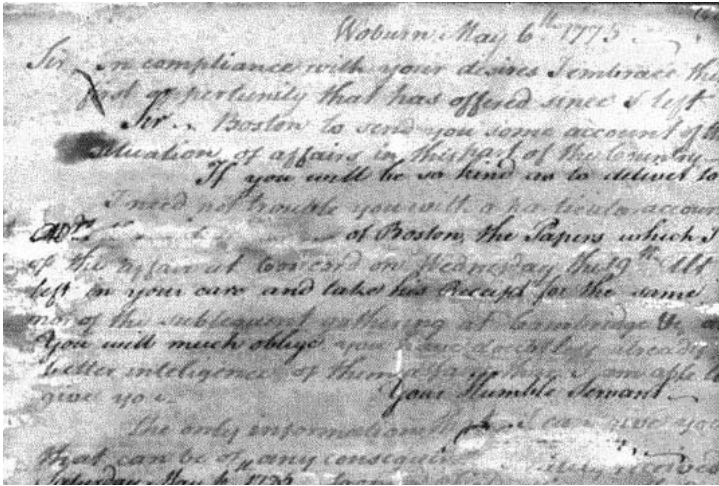 Woburn May 6th 1775
Sir, in compliance with your desires I embrace the
first opportunity that has offered since I left
Sir Boston to send you some account of the
situation of affairs in this part of the Country
If you will be so kind as to deliver to
I need not trouble you with a particular account
of Boston, the Papers which I
of the affair at Concord on Wednesday the 19th Ult
left in your care and take his Receipt for the same
nor of the subsequent gathering at Cambridge &c as
You will much oblige you have doubtless already
better inteligence of them than I am able to
Your Humble Servant
give you
The only information that I can give you
that can be of any consequence received
Saturday May 6 1775